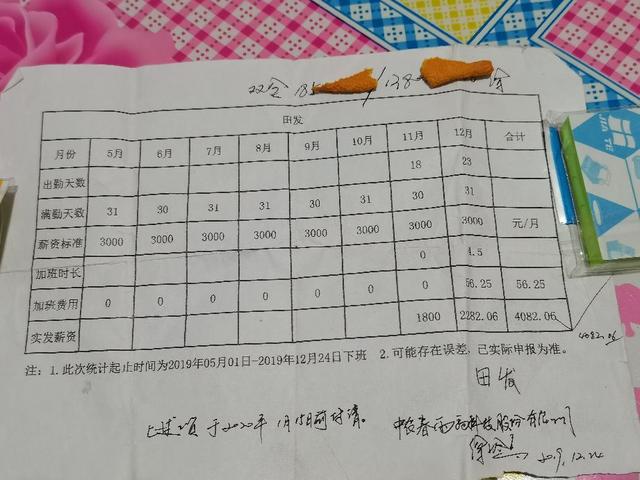 双全 185 / 138
田发
月份 5月 6月 7月 8月 9月 10月 11月 12月 合计
出勤天数 18 23
满勤天数 31 30 31 31 30 31 30 31
薪资标准 3000 3000 3000 3000 3000 3000 3000 3000 元/月
加班时长 0 4.5
加班费用 0 0 0 0 0 0 0 56.25 56.25
实发薪资 1800 2282.06 4082.06
4082.06
注：1.此次统计起止时间为2019年05月01日-2019年12月24日下班 2.可能存在误差，已实际申报为准。
田发
上述项于2020年1月15日前付清。 中长春雨科技股份有限公司
2019.12.24